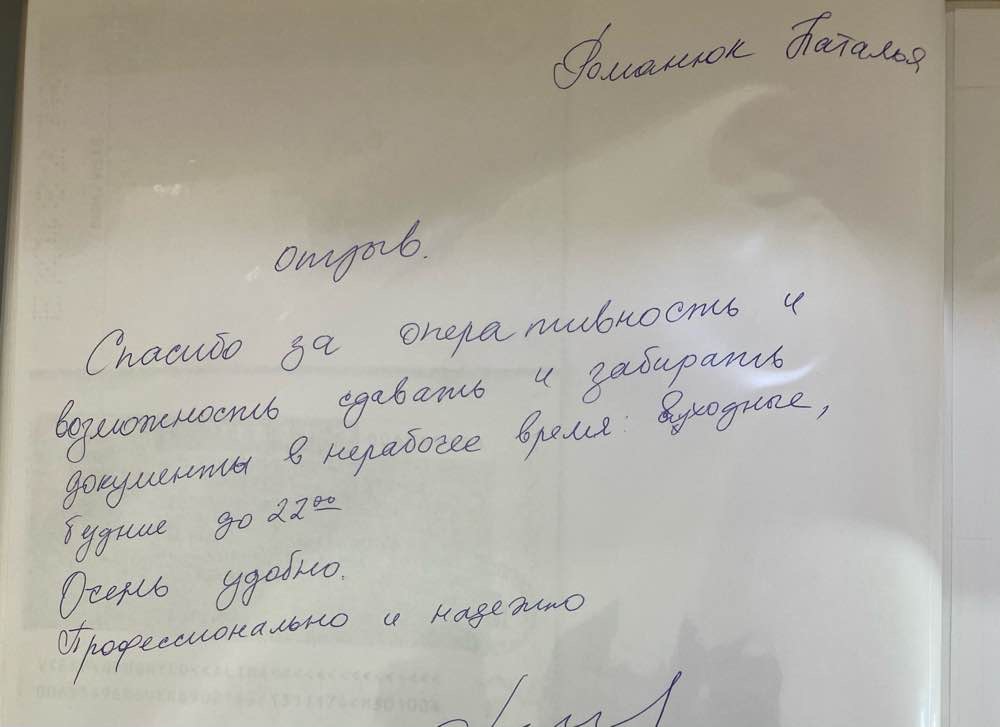 Романюк Наталья
отзыв.
Спасибо за оперативность и
возможность сдавать и забирать
документы в нерабочее время: выходные,
будние до 22 00
Очень удобно.
Профессионально и надежно